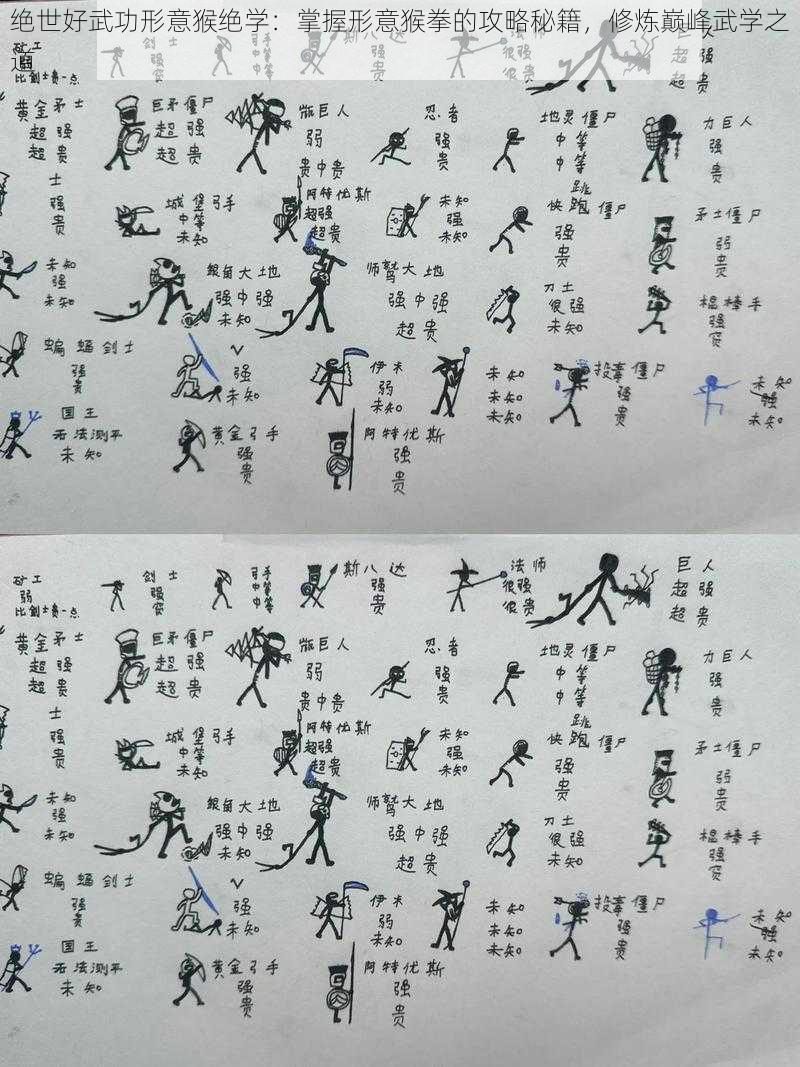 绝世好武功形意猴绝学：掌握形意猴拳的攻略秘籍，修炼巅峰武学之
道
矿工
比剑士贵一点
剑士
强
弓手
中等
中等
斯八达
强
贵
很强
很贵
强
超贵
黄金矛士
超强
超贵
巨矛僵尸
超强
超贵
巨人
弱
贵中贵
忍者
强
贵
地灵僵尸
中等
中等
力巨人
强
贵
士
强
贵
城堡弓手
中等
未知
阿特优斯
超强
超贵
未知
强
未知
跳
快跑僵尸
强
贵
矛士僵尸
弱
贵
未知
强
未知
银角大地
强中强
未知
师鹫大地
强中强
超贵
刀士
很强
未知
棍棒手
强
贫
蝙蝠剑士
强
贵
V
强
未知
伊卡
弱
未知
未知
未知
未知
投毒僵尸
强
贵
未知
强
未知
国王
无法测平
未知
黄金弓手
强
贵
阿特优斯
强
贵
矿工
弱
比剑士贵一点
剑士
强
贫
弓手
中等
中等
斯八达
强
贵
法师
很强
很贵
巨人
超强
超贵
黄金矛士
超强
超贵
巨矛僵尸
超强
超贵
巨人
弱
贵中贵
忍者
强
贵
地灵僵尸
中等
中等
力巨人
强
贵
士
强
贵
城堡弓手
中等
未知
阿特优斯
超强
超贵
未知
强
未知
跳
快跑僵尸
强
贵
矛士僵尸
弱
贵
未知
强
未知
银角大地
强中强
未知
师鹫大地
强中强
超贵
刀士
很强
未知
棍棒手
强
贫
蝙蝠剑士
强
贵
V
强
未知
伊卡
弱
未知
未知
未知
未知
投毒僵尸
强
贵
未知
强
未知
国王
无法测平
未知
黄金弓手
强
贵
阿特优斯
强
贵